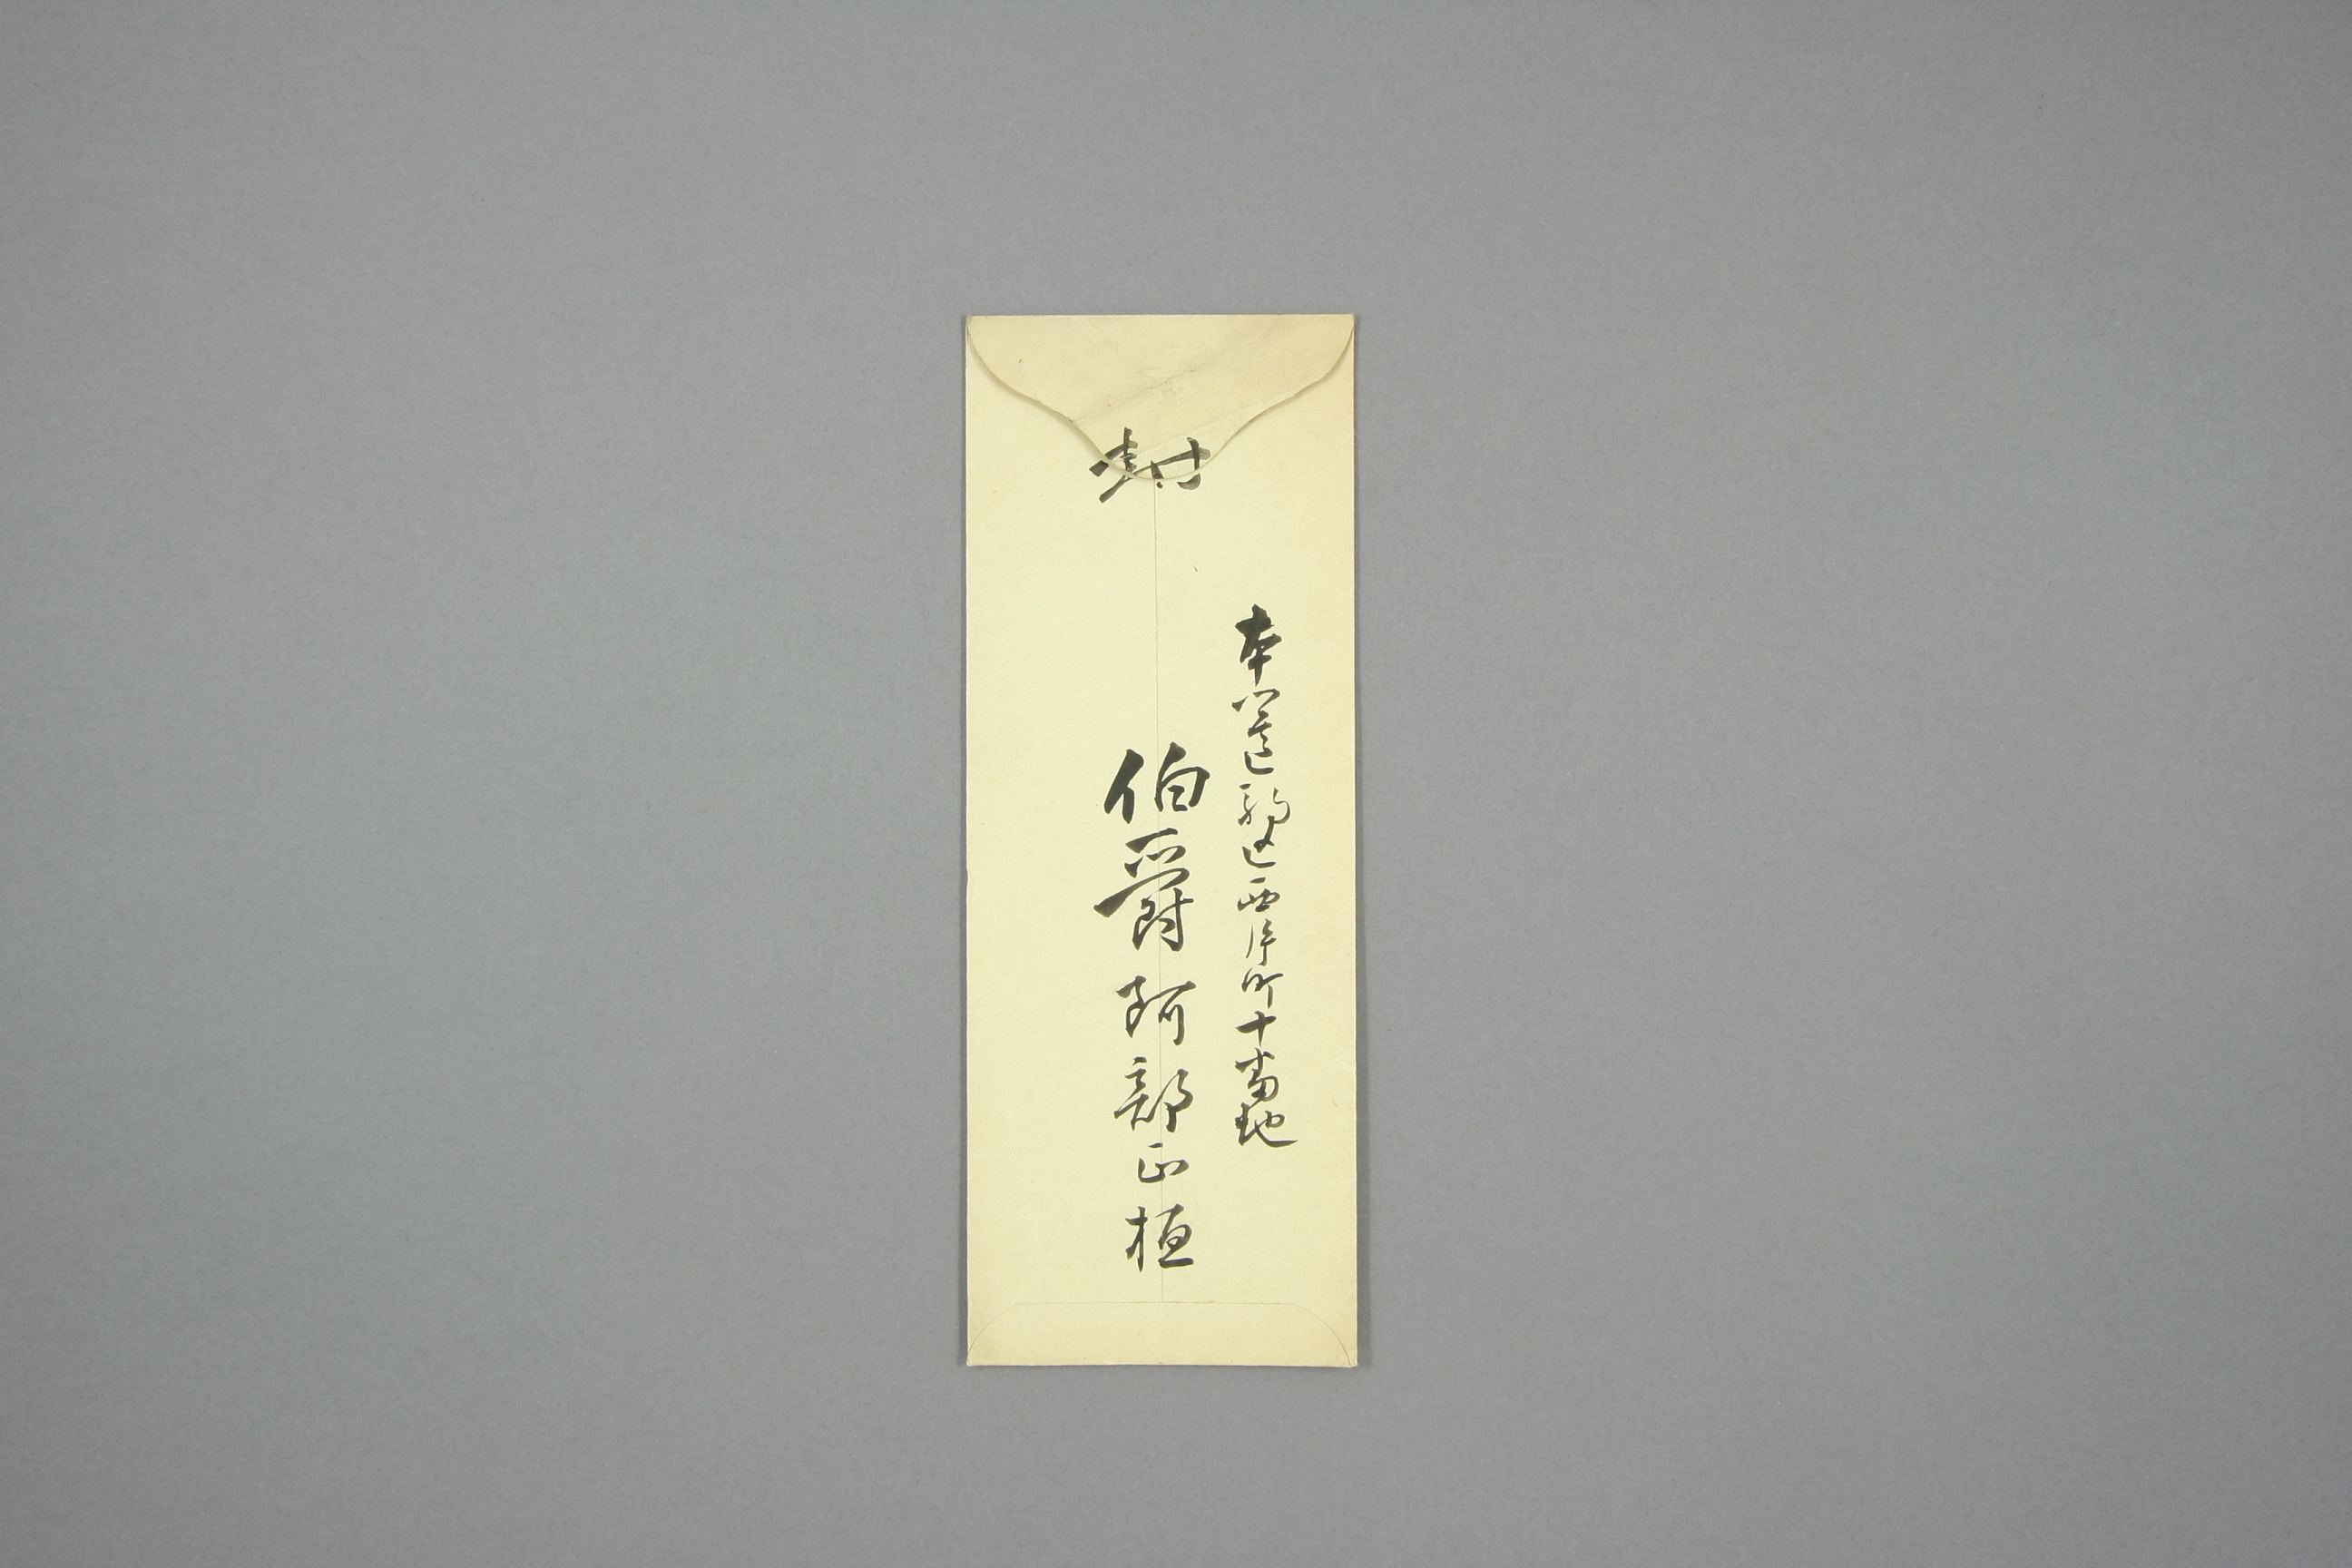 封
本郷区駒込西片町十番地
伯爵阿部正桓